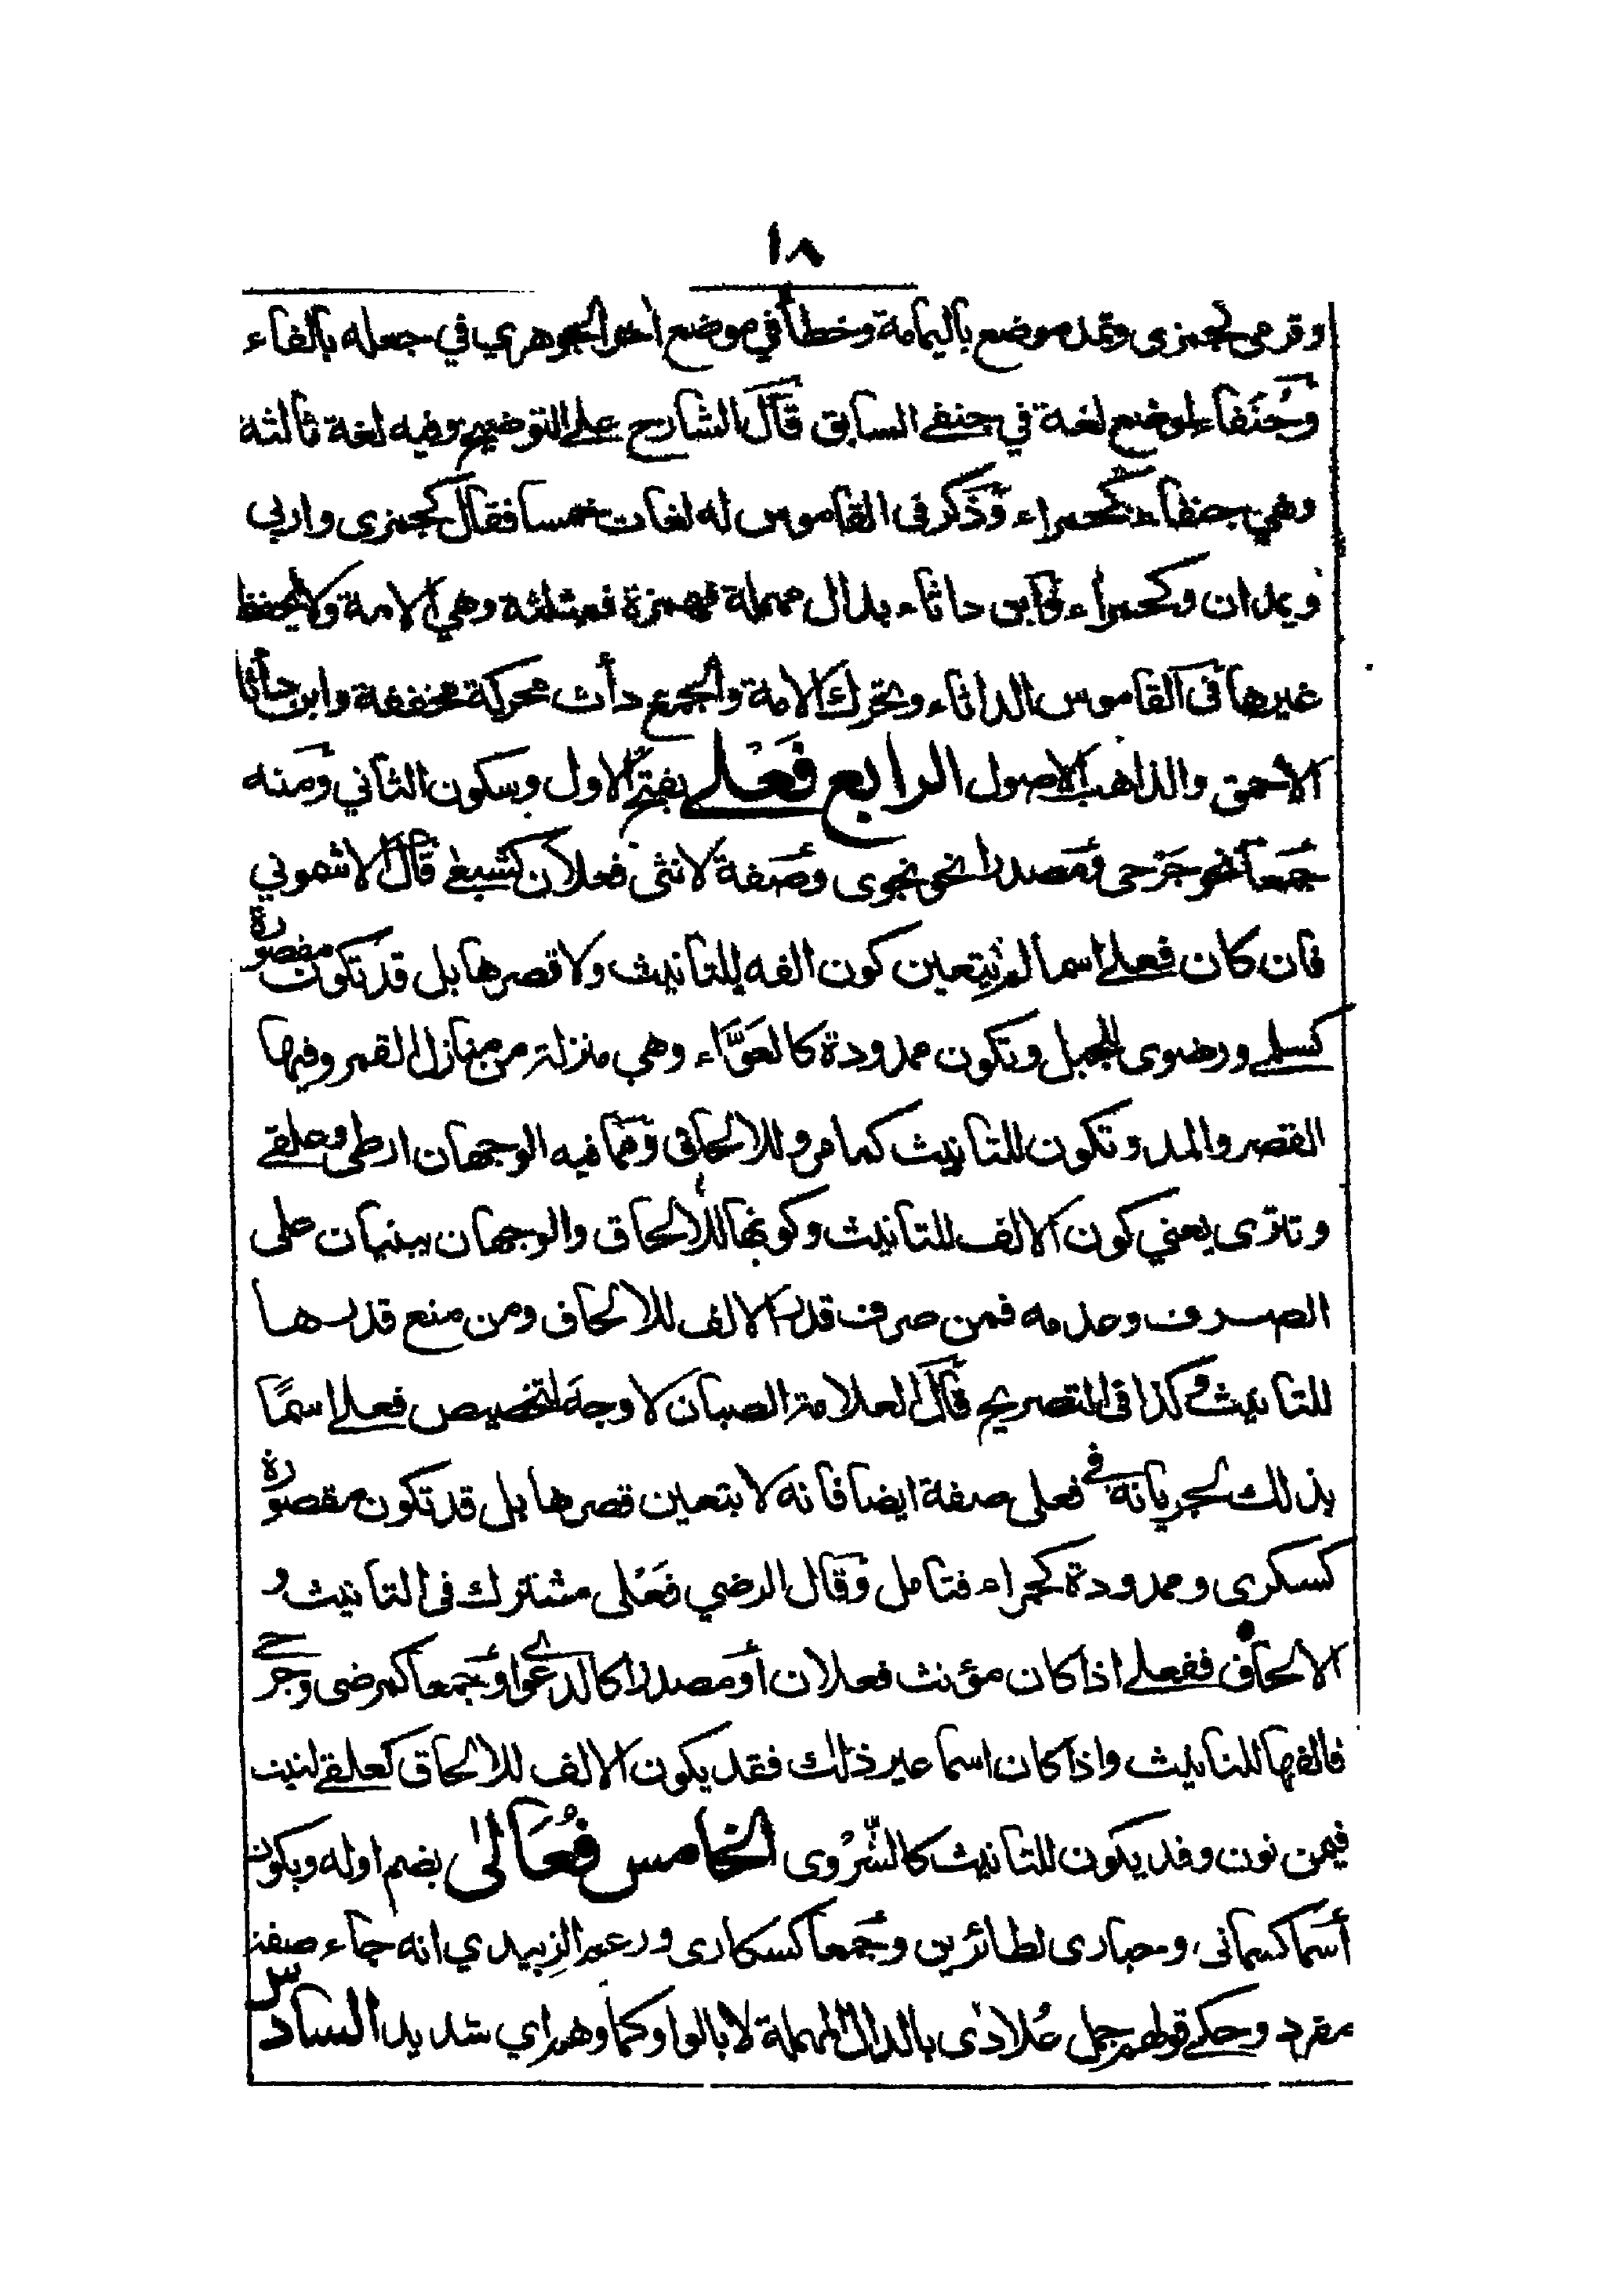 ١٨
وقرمى كجمزى وتمد موضع باليمامة وخطأ في موضع اخر الجوهري في جعله بالفاء
وجُنَفاء لموضع لغة في جنفے السابق قال الشارح علے التوضيح وفيه لغة ثالثة
وهي جنفاء كحمراء وذكر في القاموس له لغات خمسا فقال كجمزى واربى
ويمدان وكحمراء وابن داثاء بدال مهملة فهمزة فمثلثة وهي الامة ولا يحفظ
غيرها في القاموس الداثاء ويحرك الامة والجمع دأث محركة مخففة وابن دأثا
الاحمق والذاهب الاصول الرابع فَعْلے بفتح الاول وسكون الثاني ومنه
جمعا نحو جَرْحى ومصدرا نحو نجوى وصفة لانثى فعلان كشبعے قال الاشموني
فان كان فعلے اسما لم يتعين كون الفه للتانيث ولا قصرها بل قد تكون مقصورة
كسلمے ورضوى لجبل وتكون ممدودة كالعَوَّاء وهي منزلة من منازل القمر وفيها
القصر والمد وتكون للتانيث كما مر وللالحاق ومما فيه الوجهان ارطى وعلقے
وتترى يعني كون الالف للتانيث وكونها للالحاق والوجهان يبنيان على
الصرف وعدمه فمن صرف قدر الالف للالحاق ومن منع قدرها
للتانيث وكذا في التصريح قال العلامة الصبان لا وجه لتخصيص فعلے اسمًا
بذلك لجريانه في فعلى صفة ايضا فانه لا يتعين قصرها بل قد تكون مقصورة
كسكرى وممدودة كحمراء فتامل وقال الرضي فَعْلى مشترك في التانيث و
الالحاق ففعلے اذا كان مؤنث فعلان او مصدرا كالدعوے او جمعا كمرضى وجرحے
فالفها للتانيث واذا كان اسما غير ذلك فقد يكون الالف للالحاق كعلقے لنبت
فيمن نون وقد يكون للتانيث كالشَّرْوى الخامس فُعَالىٰ بضم اوله ويكون
أسما كسمانى وحبارى لطائرين وجمعا كسكارى وزعم الزبيدي انه جاء صفة
مفرد وحكے قولهم جمل عُلادى بالدال المهملة لا بالواو كما وهم اي شديد السادس